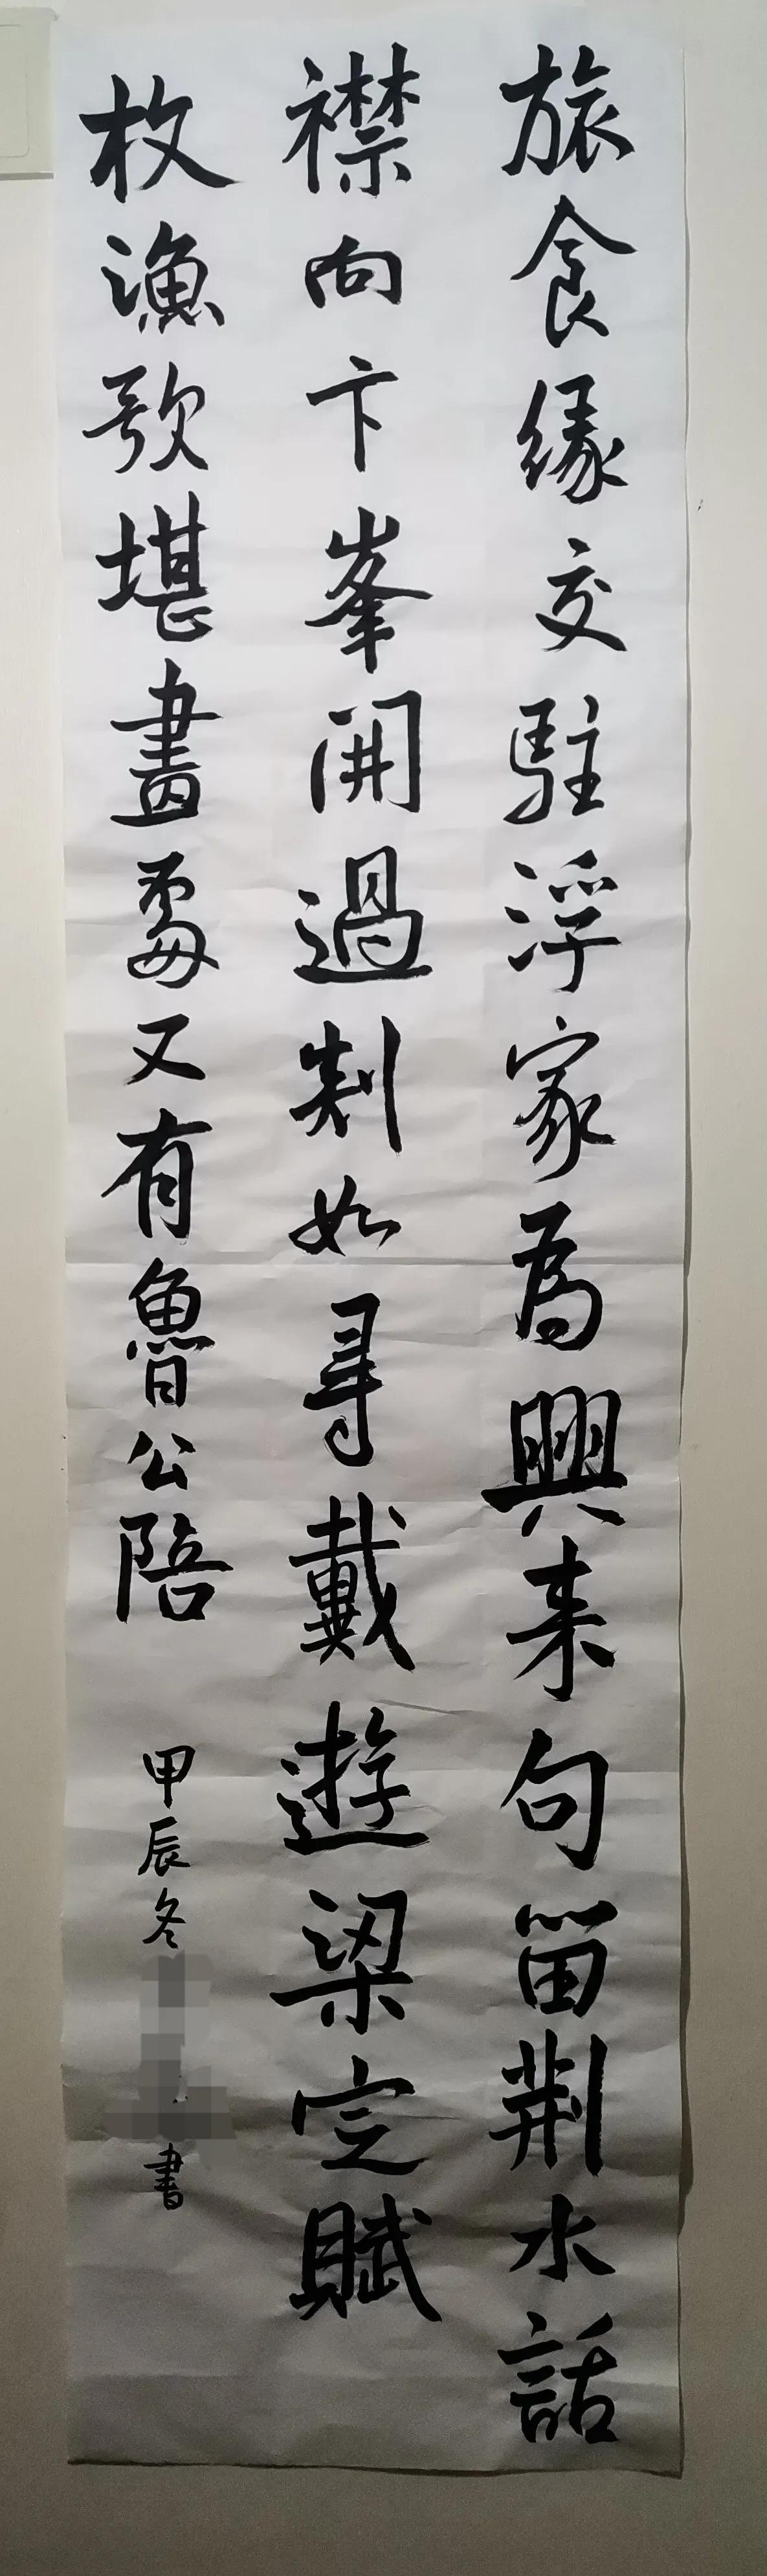 旅食緣交駐浮家為興来句留荆水話
襟向卞峯開過剡如尋戴遊梁定賦
枚漁歌堪畫處又有魯公陪
甲辰冬
書